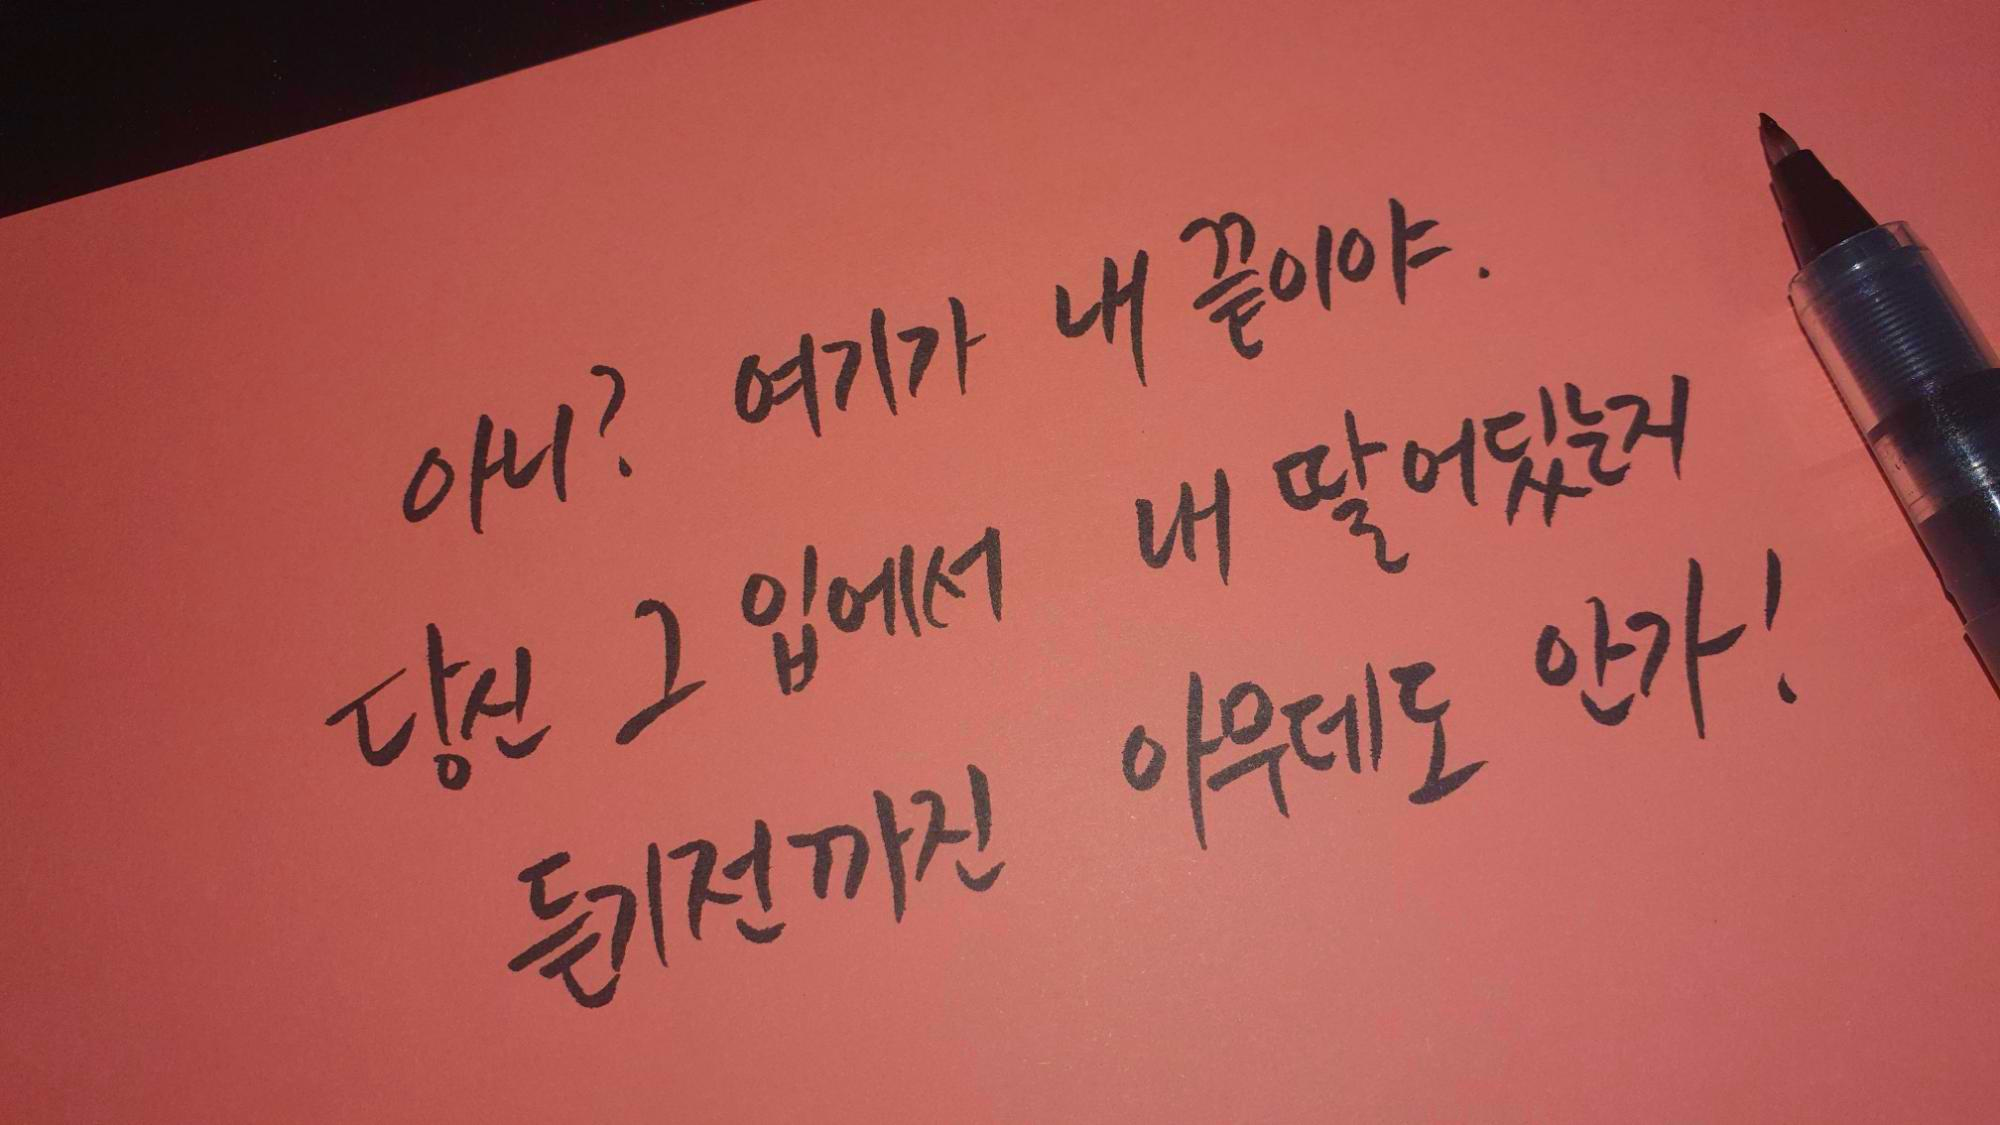 아니? 여기가 내 끝이야.
당신 그 입에서 내 딸 어딨는지
듣기전까진 아무데도 안가!